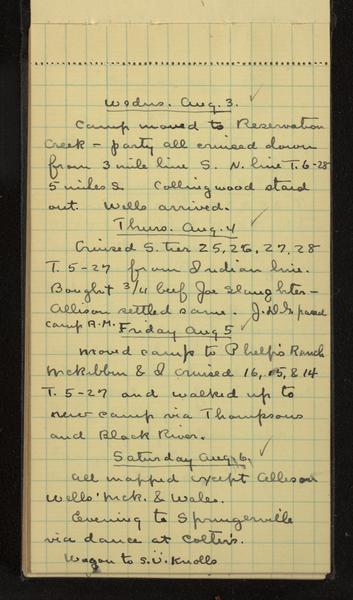 Wednes. Aug. 3.
Camp moved to Reservation
Creek - party all cruised down
from 3 mile line S. N. line T. 6-28
5 miles S. Collingwood staid
out. Wells arrived.
Thurs. Aug. 4
Cruised S. tier 25, 26, 27, 28
T. 5-27 from Indian line.
Bought 3/4 beef Joe Slaughter -
Allison settled same. J.D.G. passed
camp A.M.
Friday Aug 5
Moved camp to Phelps Ranch
McKibbin & I cruised 16, 15, & 14
T. 5-27 and walked up to
new camp via Thompsons
and Black River.
Saturday Aug. 6.
All mapped except Allison
Wells' McK. & Wales.
Evening to Springerville
via dance at Colter's.
Wagon to S.U. Knolls